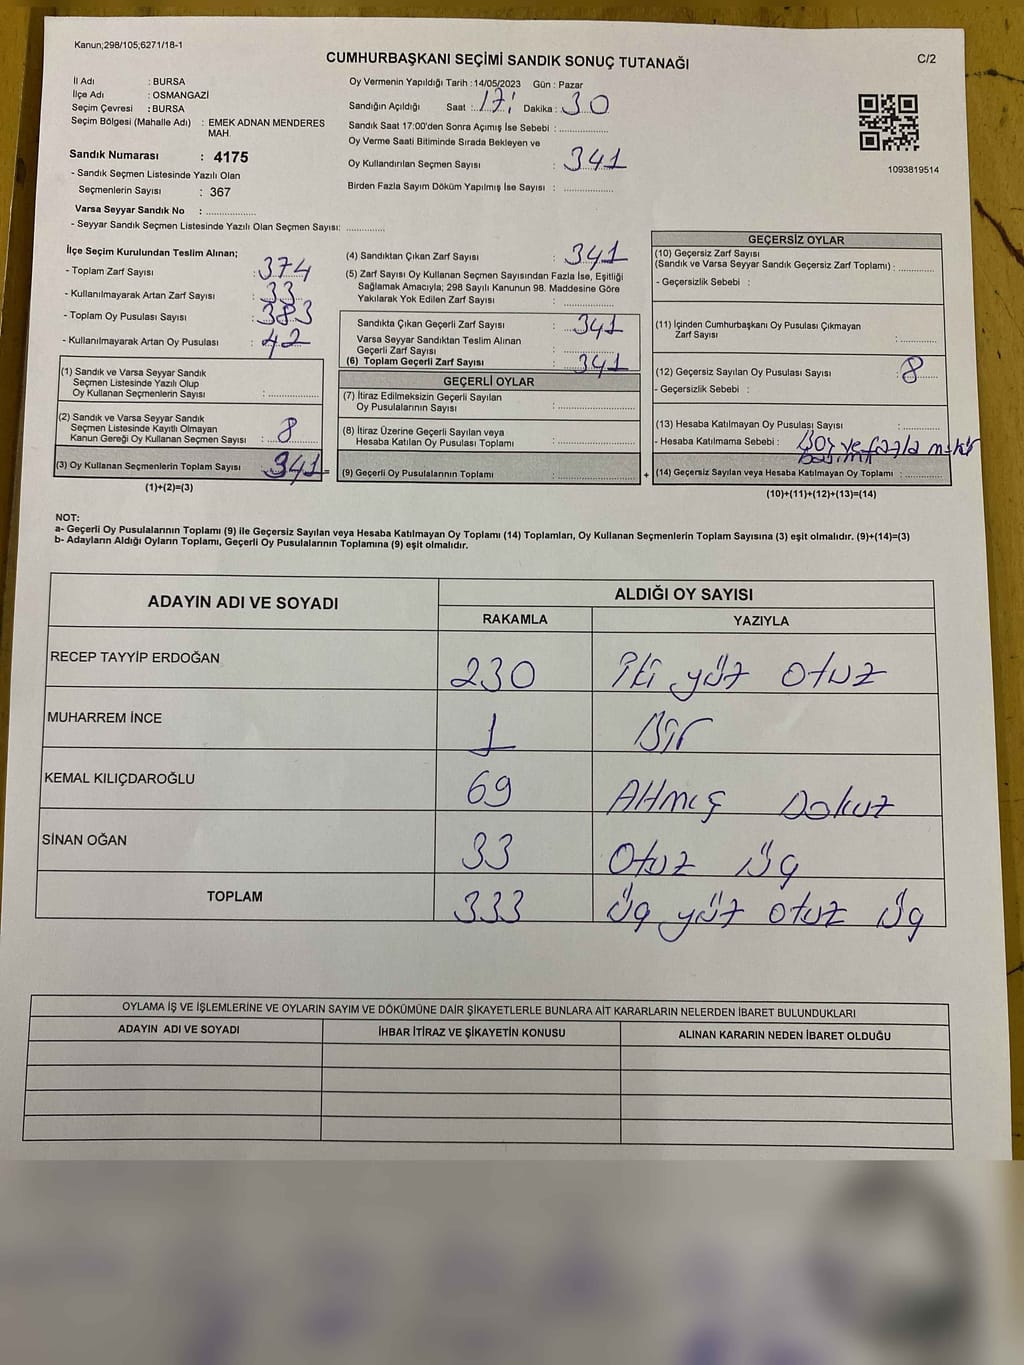 Kanun;298/105;6271/18-1
CUMHURBAŞKANI SEÇİMİ SANDIK SONUÇ TUTANAĞI
C/2
İl Adı : BURSA
İlçe Adı : OSMANGAZİ
Seçim Çevresi : BURSA
Seçim Bölgesi (Mahalle Adı) : EMEK ADNAN MENDERES
MAH.
Sandık Numarası : 4175
- Sandık Seçmen Listesinde Yazılı Olan
Seçmenlerin Sayısı : 367
Varsa Seyyar Sandık No : ..................
- Seyyar Sandık Seçmen Listesinde Yazılı Olan Seçmen Sayısı: ..............
Oy Vermenin Yapıldığı Tarih : 14/05/2023 Gün : Pazar
Sandığın Açıldığı Saat : 17: Dakika : 30
Sandık Saat 17:00'den Sonra Açımış İse Sebebi : ..................
Oy Verme Saati Bitiminde Sırada Bekleyen ve
Oy Kullandırılan Seçmen Sayısı : 341
Birden Fazla Sayım Döküm Yapılmış İse Sayısı : ..................
1093819514
İlçe Seçim Kurulundan Teslim Alınan;
- Toplam Zarf Sayısı : 374
- Kullanılmayarak Artan Zarf Sayısı : 33
- Toplam Oy Pusulası Sayısı : 383
- Kullanılmayarak Artan Oy Pusulası : 42
(1) Sandık ve Varsa Seyyar Sandık
Seçmen Listesinde Yazılı Olup
Oy Kullanan Seçmenlerin Sayısı : ..................
(2) Sandık ve Varsa Seyyar Sandık
Seçmen Listesinde Kayıtlı Olmayan
Kanun Gereği Oy Kullanan Seçmen Sayısı : 8
(3) Oy Kullanan Seçmenlerin Toplam Sayısı 341
(1)+(2)=(3)
(4) Sandıktan Çıkan Zarf Sayısı : 341
(5) Zarf Sayısı Oy Kullanan Seçmen Sayısından Fazla İse, Eşitliği
Sağlamak Amacıyla; 298 Sayılı Kanunun 98. Maddesine Göre
Yakılarak Yok Edilen Zarf Sayısı : ..................
Sandıkta Çıkan Geçerli Zarf Sayısı : 341
Varsa Seyyar Sandıktan Teslim Alınan
Geçerli Zarf Sayısı : ..................
(6) Toplam Geçerli Zarf Sayısı : 341
GEÇERLİ OYLAR
(7) İtiraz Edilmeksizin Geçerli Sayılan
Oy Pusulalarının Sayısı : ..................
(8) İtiraz Üzerine Geçerli Sayılan veya
Hesaba Katılan Oy Pusulası Toplamı : ..................
(9) Geçerli Oy Pusulalarının Toplamı : ..................
+
GEÇERSİZ OYLAR
(10) Geçersiz Zarf Sayısı
(Sandık ve Varsa Seyyar Sandık Geçersiz Zarf Toplamı) : ............
- Geçersizlik Sebebi :
(11) İçinden Cumhurbaşkanı Oy Pusulası Çıkmayan
Zarf Sayısı : ............
(12) Geçersiz Sayılan Oy Pusulası Sayısı : 8
- Geçersizlik Sebebi :
(13) Hesaba Katılmayan Oy Pusulası Sayısı : ............
- Hesaba Katılmama Sebebi : Boş ve fazla
(14) Geçersiz Sayılan veya Hesaba Katılmayan Oy Toplamı : ............
(10)+(11)+(12)+(13)=(14)
NOT:
a- Geçerli Oy Pusulalarının Toplamı (9) ile Geçersiz Sayılan veya Hesaba Katılmayan Oy Toplamı (14) Toplamları, Oy Kullanan Seçmenlerin Toplam Sayısına (3) eşit olmalıdır. (9)+(14)=(3)
b- Adayların Aldığı Oyların Toplamı, Geçerli Oy Pusulalarının Toplamına (9) eşit olmalıdır.
ADAYIN ADI VE SOYADI
ALDIĞI OY SAYISI
RAKAMLA YAZIYLA
RECEP TAYYİP ERDOĞAN 230 İki yüz otuz
MUHARREM İNCE 1 Bir
KEMAL KILIÇDAROĞLU 69 Altmış Dokuz
SİNAN OĞAN 33 Otuz üç
TOPLAM 333 Üç yüz otuz üç
OYLAMA İŞ VE İŞLEMLERİNE VE OYLARIN SAYIM VE DÖKÜMÜNE DAİR ŞİKAYETLERLE BUNLARA AİT KARARLARIN NELERDEN İBARET BULUNDUKLARI
ADAYIN ADI VE SOYADI İHBAR İTİRAZ VE ŞİKAYETİN KONUSU ALINAN KARARIN NEDEN İBARET OLDUĞU